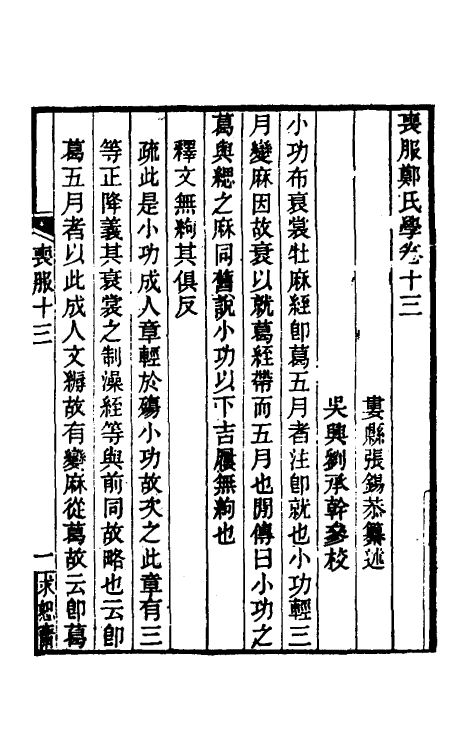 喪服鄭氏學卷十三
婁縣張錫恭纂述
吳興劉承幹參校
小功布衰裳牡麻絰卽葛五月者注卽就也小功輕三
月變麻因故衰以就葛絰帶而五月也閒傳曰小功之
葛與緦之麻同舊說小功以下吉屨無絇也
釋文無絇其俱反
疏此是小功成人章輕於殤小功故次之此章有三
等正降義其衰裳之制澡絰等與前同故略也云卽
葛五月者以此成人文縟故有變麻從葛故云卽葛
喪服十三
一
求恕齋